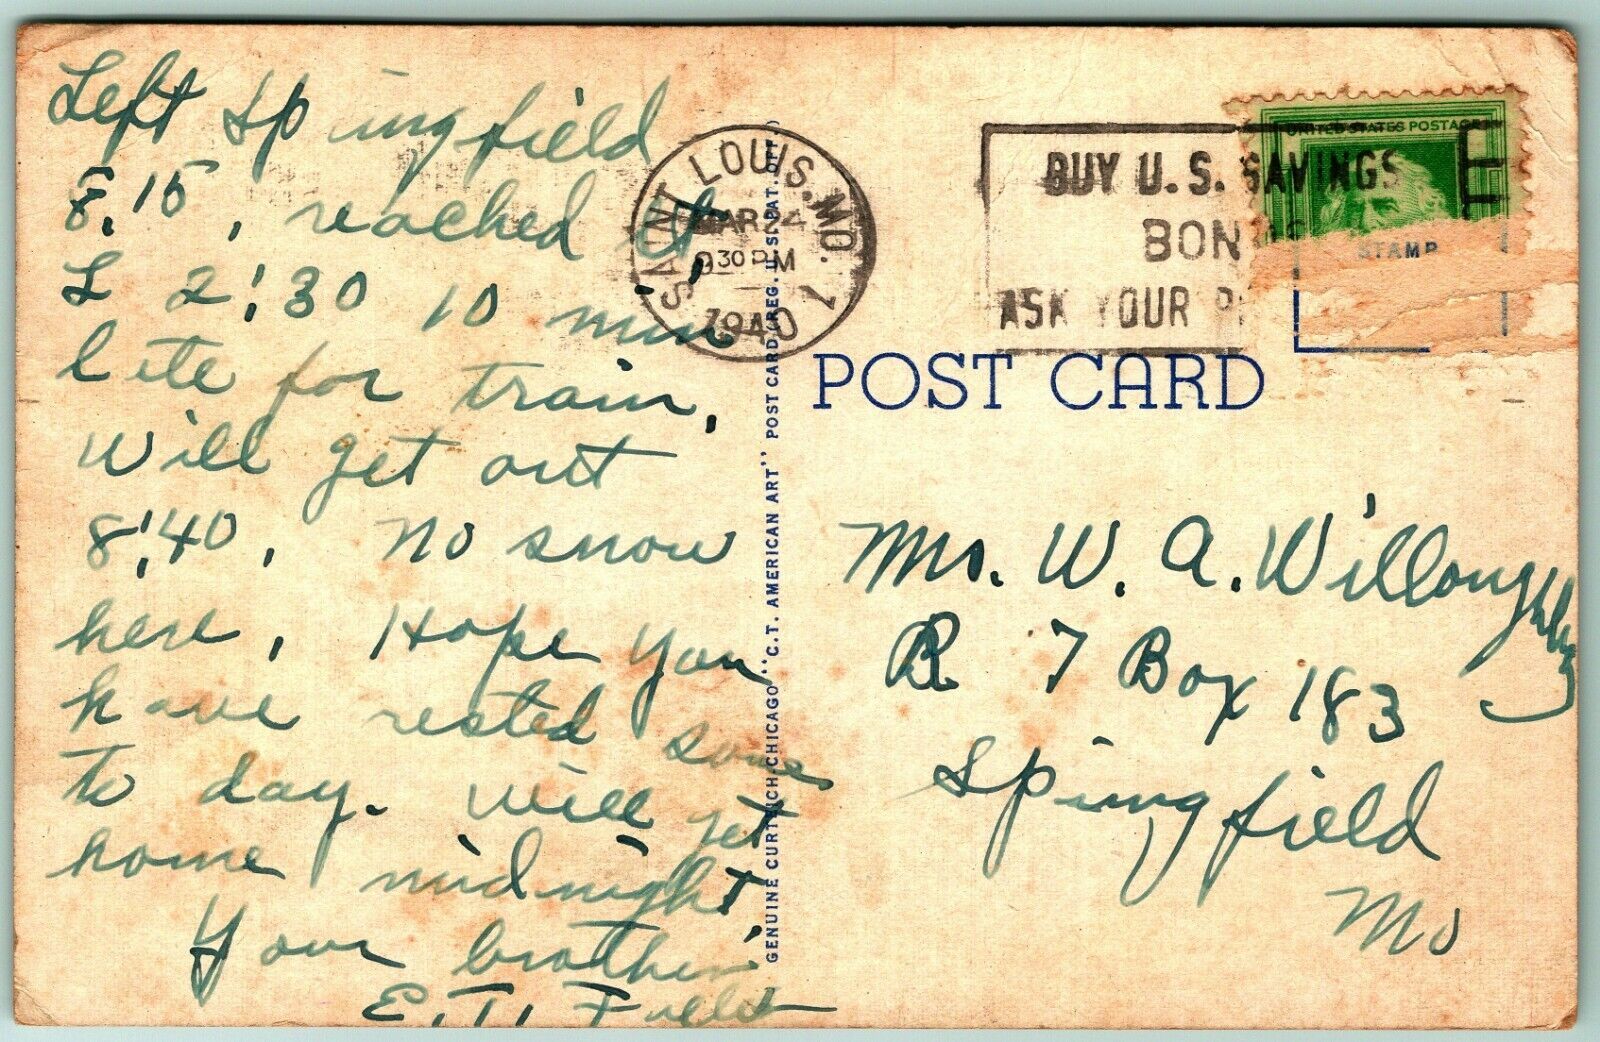 Left Springfield
8.15, reached St,
L 2:30 10 min
late for train,
will get out
8:40. No snow
here, Hope you
have rested some
to day. Will get
home midnight,
Your brother,
E. T.
SAINT LOUIS, MO. 1
MAR 24
9 30 PM
1940
BUY U.S. SAVINGS
BONDS
ASK YOUR
UNITED STATES POSTAGE
STAMP
POST CARD
GENUINE CURTEICH, CHICAGO "C.T. AMERICAN ART" POST CARD (REG. U.S. PAT. OFF.)
Mrs. W. A. Willoughby
R 7 Box 183
Springfield
Mo